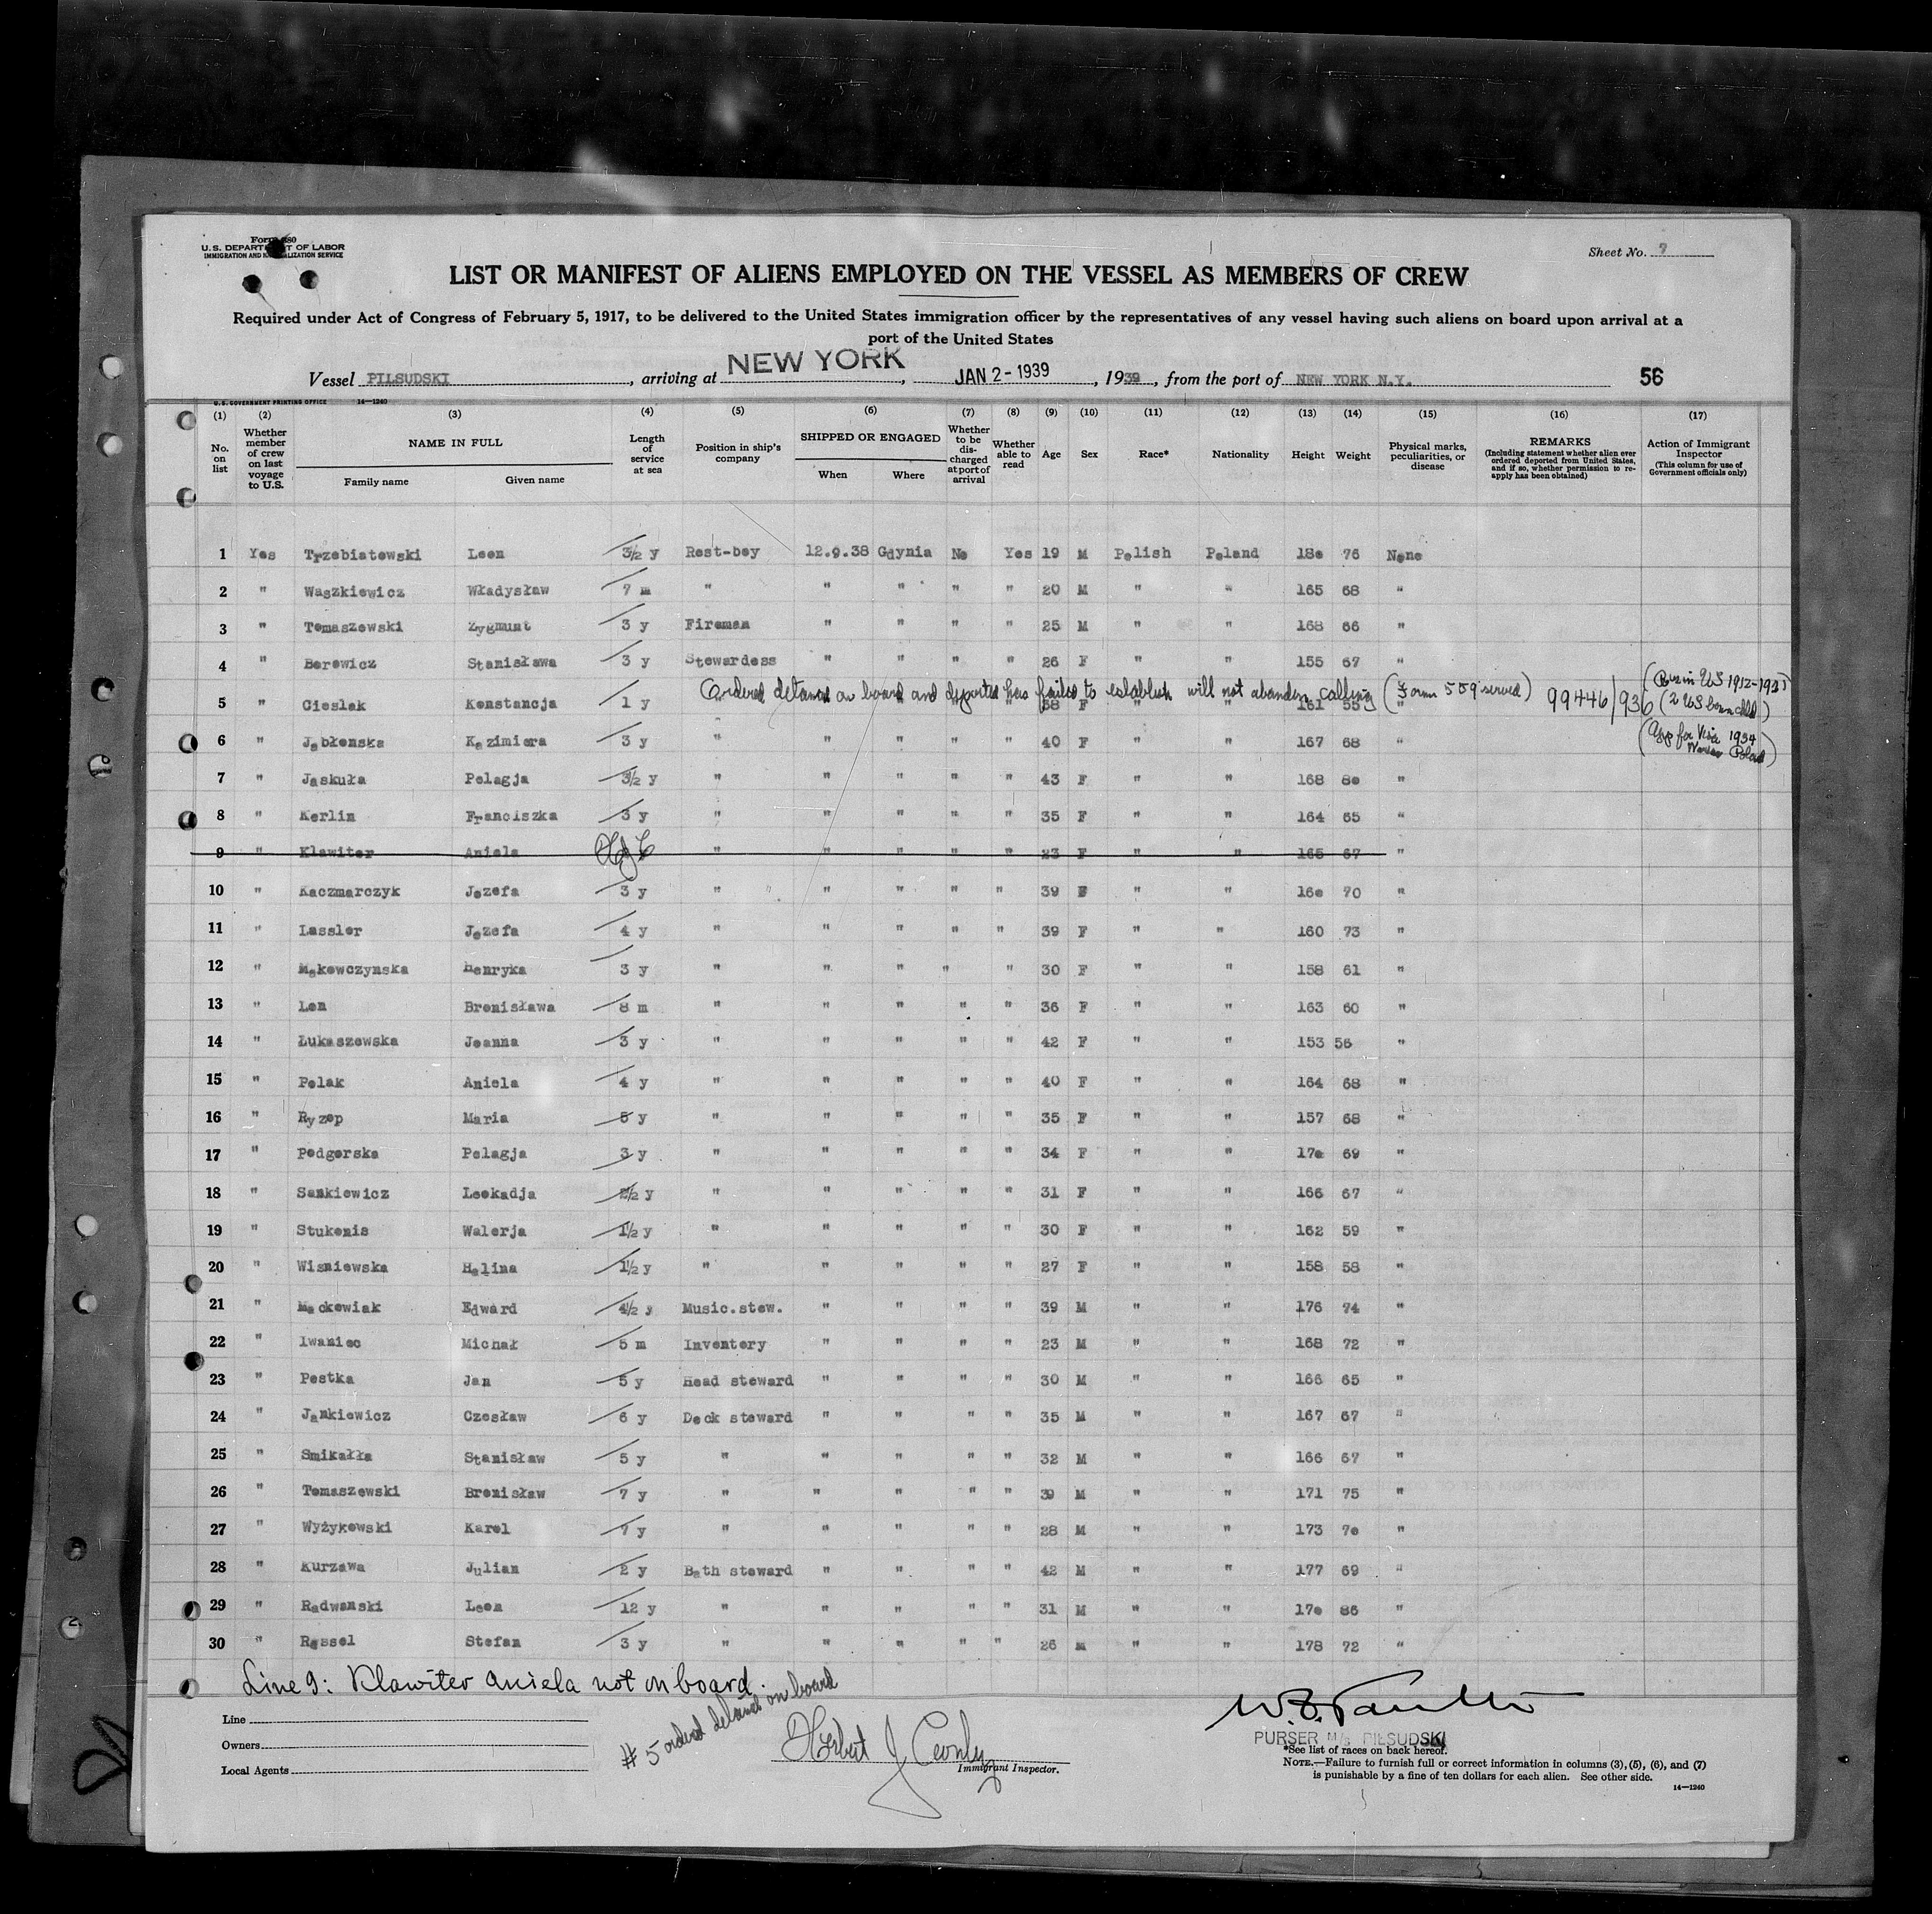 Form 680
U. S. DEPARTMENT OF LABOR
IMMIGRATION AND NATURALIZATION SERVICE
Sheet No. 7
LIST OR MANIFEST OF ALIENS EMPLOYED ON THE VESSEL AS MEMBERS OF CREW
Required under Act of Congress of February 5, 1917, to be delivered to the United States immigration officer by the representatives of any vessel having such aliens on board upon arrival at a
port of the United States
Vessel PILSUDSKI, arriving at NEW YORK, JAN 2 - 1939, 1939, from the port of NEW YORK N.Y. 56
U. S. GOVERNMENT PRINTING OFFICE 14—1240
(1) (2) (3) (4) (5) (6) (7) (8) (9) (10) (11) (12) (13) (14) (15) (16) (17)
No. on list
Whether member of crew on last voyage to U.S.
NAME IN FULL
Family name Given name
Length of service at sea
Position in ship's company
SHIPPED OR ENGAGED
When Where
Whether to be discharged at port of arrival
Whether able to read
Age
Sex
Race*
Nationality
Height
Weight
Physical marks, peculiarities, or disease
REMARKS
(Including statement whether alien ever ordered deported from United States, and if so, whether permission to re-apply has been obtained)
Action of Immigrant Inspector
(This column for use of Government officials only)
1 Yes Trzebiatowski Leon 3½ y Rest-boy 12.9.38 Gdynia No Yes 19 M Polish Poland 180 76 None
2 " Waszkiewicz Władysław 7 m " " " " " 20 M " " 165 68 "
3 " Tomaszewski Zygmunt 3 y Fireman " " " " 25 M " " 168 66 "
4 " Borowicz Stanisława 3 y Stewardess " " " " 26 F " " 155 67 "
Ordered detained on board and deported has failed to establish will not abandon calling (Form 559 served) 99446/936
(Res in US 1912-1921)
(2 US born chld)
(App for Visa 1934
Warsaw Poland)
5 " Cieslak Konstancja 1 y " " " " " 58 F " " 161 55 "
6 " Jabłonska Kazimiera 3 y " " " " " 40 F " " 167 68 "
7 " Jaskuła Pelagja 3½ y " " " " " 43 F " " 168 80 "
8 " Kerlin Franciszka 3 y " " " " " 35 F " " 164 65 "
9 " Klawiter Aniela " " " " " 23 F " " 165 67 "
10 " Kaczmarczyk Jozefa 3 y " " " " " 39 F " " 160 70 "
11 " Lassler Jozefa 4 y " " " " " 39 F " " 160 73 "
12 " Makowczynska Henryka 3 y " " " " " 30 F " " 158 61 "
13 " Len Bronisława 8 m " " " " " 36 F " " 163 60 "
14 " Łukaszewska Joanna 3 y " " " " " 42 F " " 153 56 "
15 " Polak Aniela 4 y " " " " " 40 F " " 164 68 "
16 " Ryzop Maria 5 y " " " " " 35 F " " 157 68 "
17 " Podgorska Pelagja 3 y " " " " " 34 F " " 170 69 "
18 " Sankiewicz Leokadja 2½ y " " " " " 31 F " " 166 67 "
19 " Stukonis Walerja 1½ y " " " " " 30 F " " 162 59 "
20 " Wisniewska Halina 1½ y " " " " " 27 F " " 158 58 "
21 " Mackowiak Edward 4½ y Music.stew. " " " " 39 M " " 176 74 "
22 " Iwaniec Michał 5 m Inventory " " " " 23 M " " 168 72 "
23 " Pestka Jan 5 y Head steward " " " " 30 M " " 166 65 "
24 " Jankiewicz Czesław 6 y Deck steward " " " " 35 M " " 167 67 "
25 " Smikałła Stanisław 5 y " " " " " 32 M " " 166 67 "
26 " Tomaszewski Bronisław 7 y " " " " " 39 M " " 171 75 "
27 " Wyżykowski Karol 7 y " " " " " 28 M " " 173 70 "
28 " Kurzawa Julian 2 y Bath steward " " " " 42 M " " 177 69 "
29 " Radwanski Leon 12 y " " " " " 31 M " " 170 86 "
30 " Rassel Stefan 3 y " " " " " 26 M " " 178 72 "
Line 9: Klawiter Aniela not on board.
# 5 ordered detained on board
Line
Owners
Local Agents
Herbert J
Immigrant Inspector.
PURSER M/S PILSUDSKI
*See list of races on back hereof.
NOTE.—Failure to furnish full or correct information in columns (3), (5), (6), and (7)
is punishable by a fine of ten dollars for each alien. See other side.
14—1240